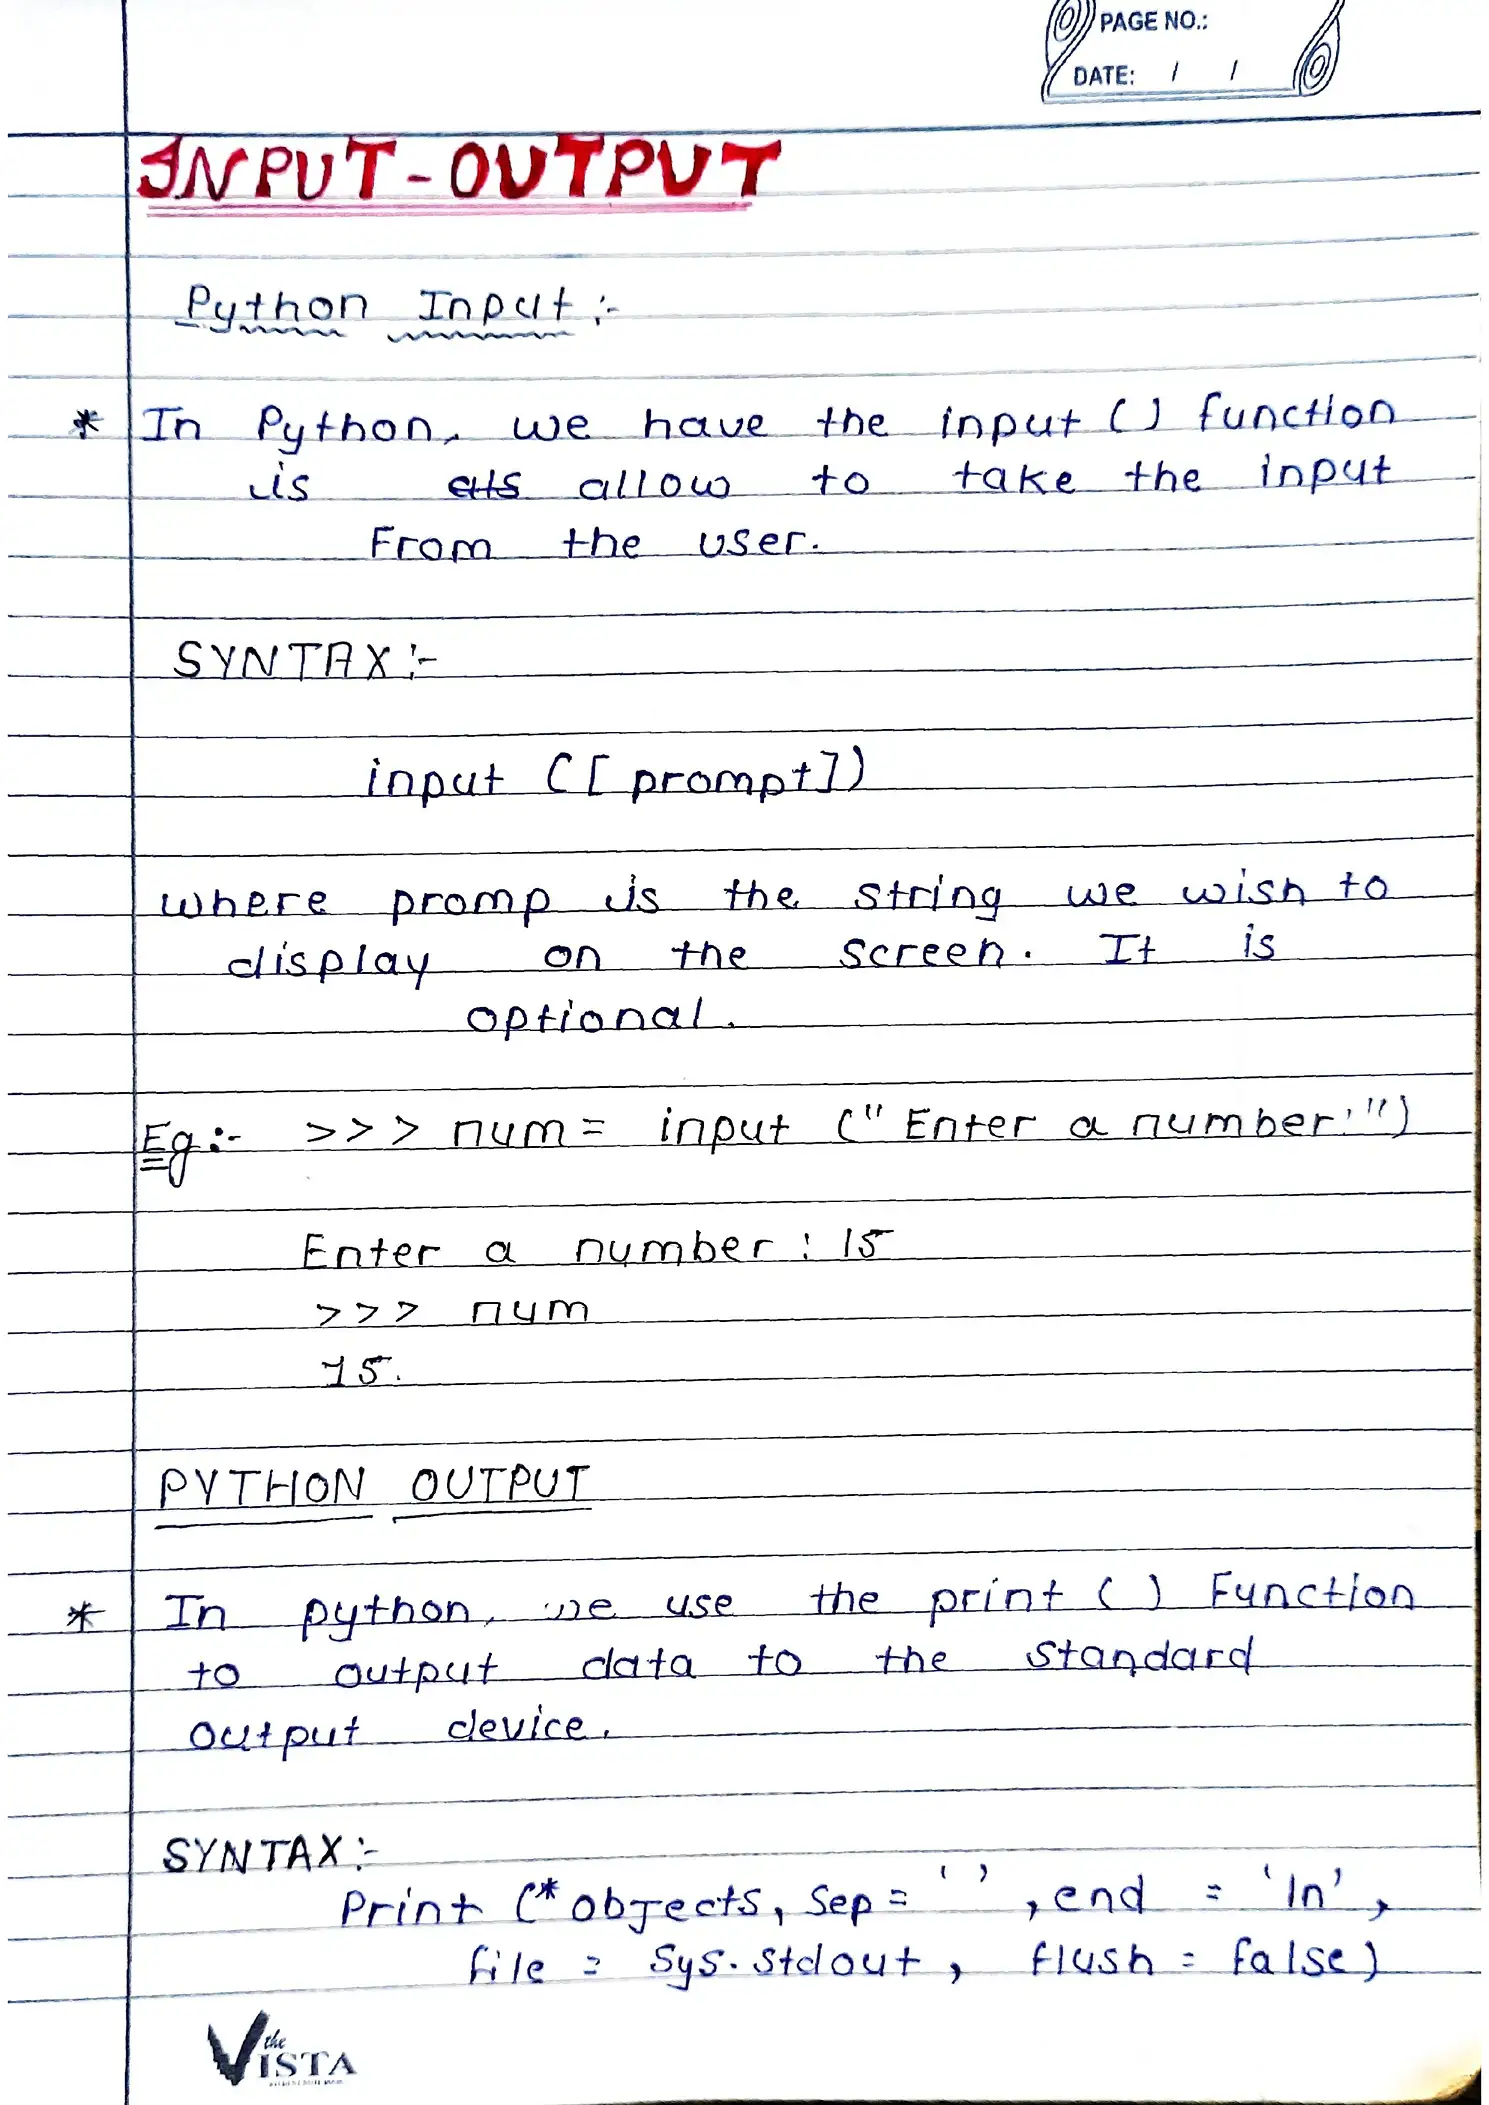 PAGE NO.:
DATE: / /
INPUT-OUTPUT
Python Input :-
* In Python, we have the input () function
is allow to take the input
From the user.
SYNTAX :-
input ([prompt])
where promp is the string we wish to
display on the screen. It is
optional.
Eg :- >>> num = input ("Enter a number:")
Enter a number : 15
>>> num
15.
PYTHON OUTPUT
* In python, we use the print () Function
to output data to the standard
output device.
SYNTAX :-
Print (* objects, Sep = ' ' , end = '\n' ,
file = Sys.stdout , flush = false)
the VISTA